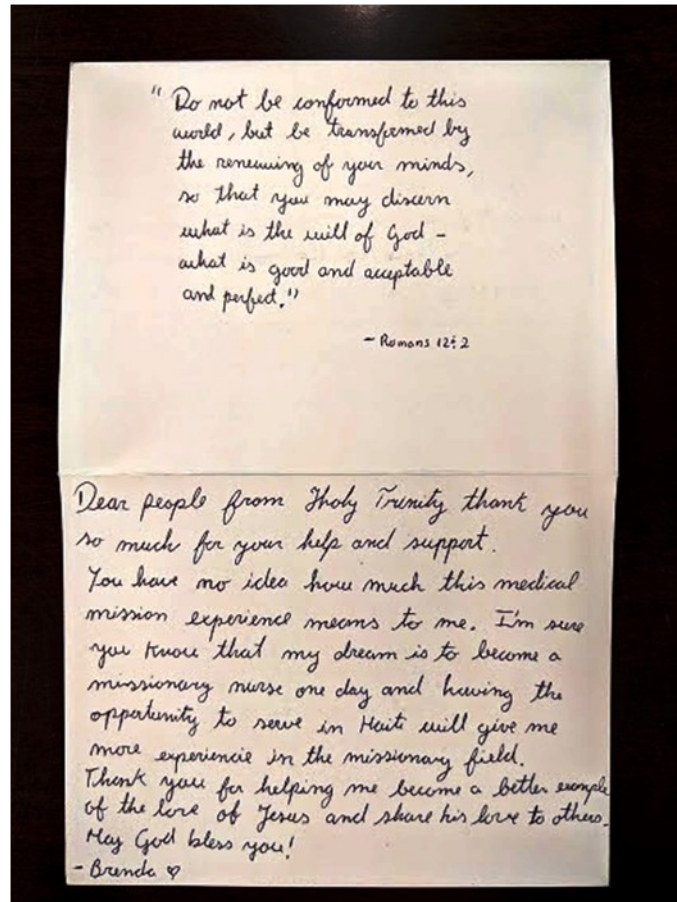 " Do not be conformed to this
world, but be transformed by
the renewing of your minds,
so that you may discern
what is the will of God -
what is good and acceptable
and perfect."
- Romans 12:2
Dear people from Holy Trinity thank you
so much for your help and support.
You have no idea how much this medical
mission experience means to me. I'm sure
you know that my dream is to become a
missionary nurse one day and having the
opportunity to serve in Haiti will give me
more experiencie in the missionary field.
Thank you for helping me become a better example
of the love of Jesus and share his love to others.
May God bless you!
- Brenda ♡